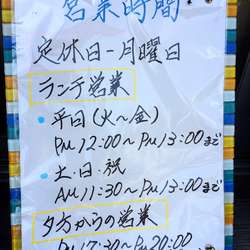 営業時間
定休日ー月曜日
ランチ営業
・平日(火〜金)
PM12:00〜PM13:00まで
・土・日・祝
AM11:30〜PM13:00まで
夕方からの営業
PM17:30〜PM20:00